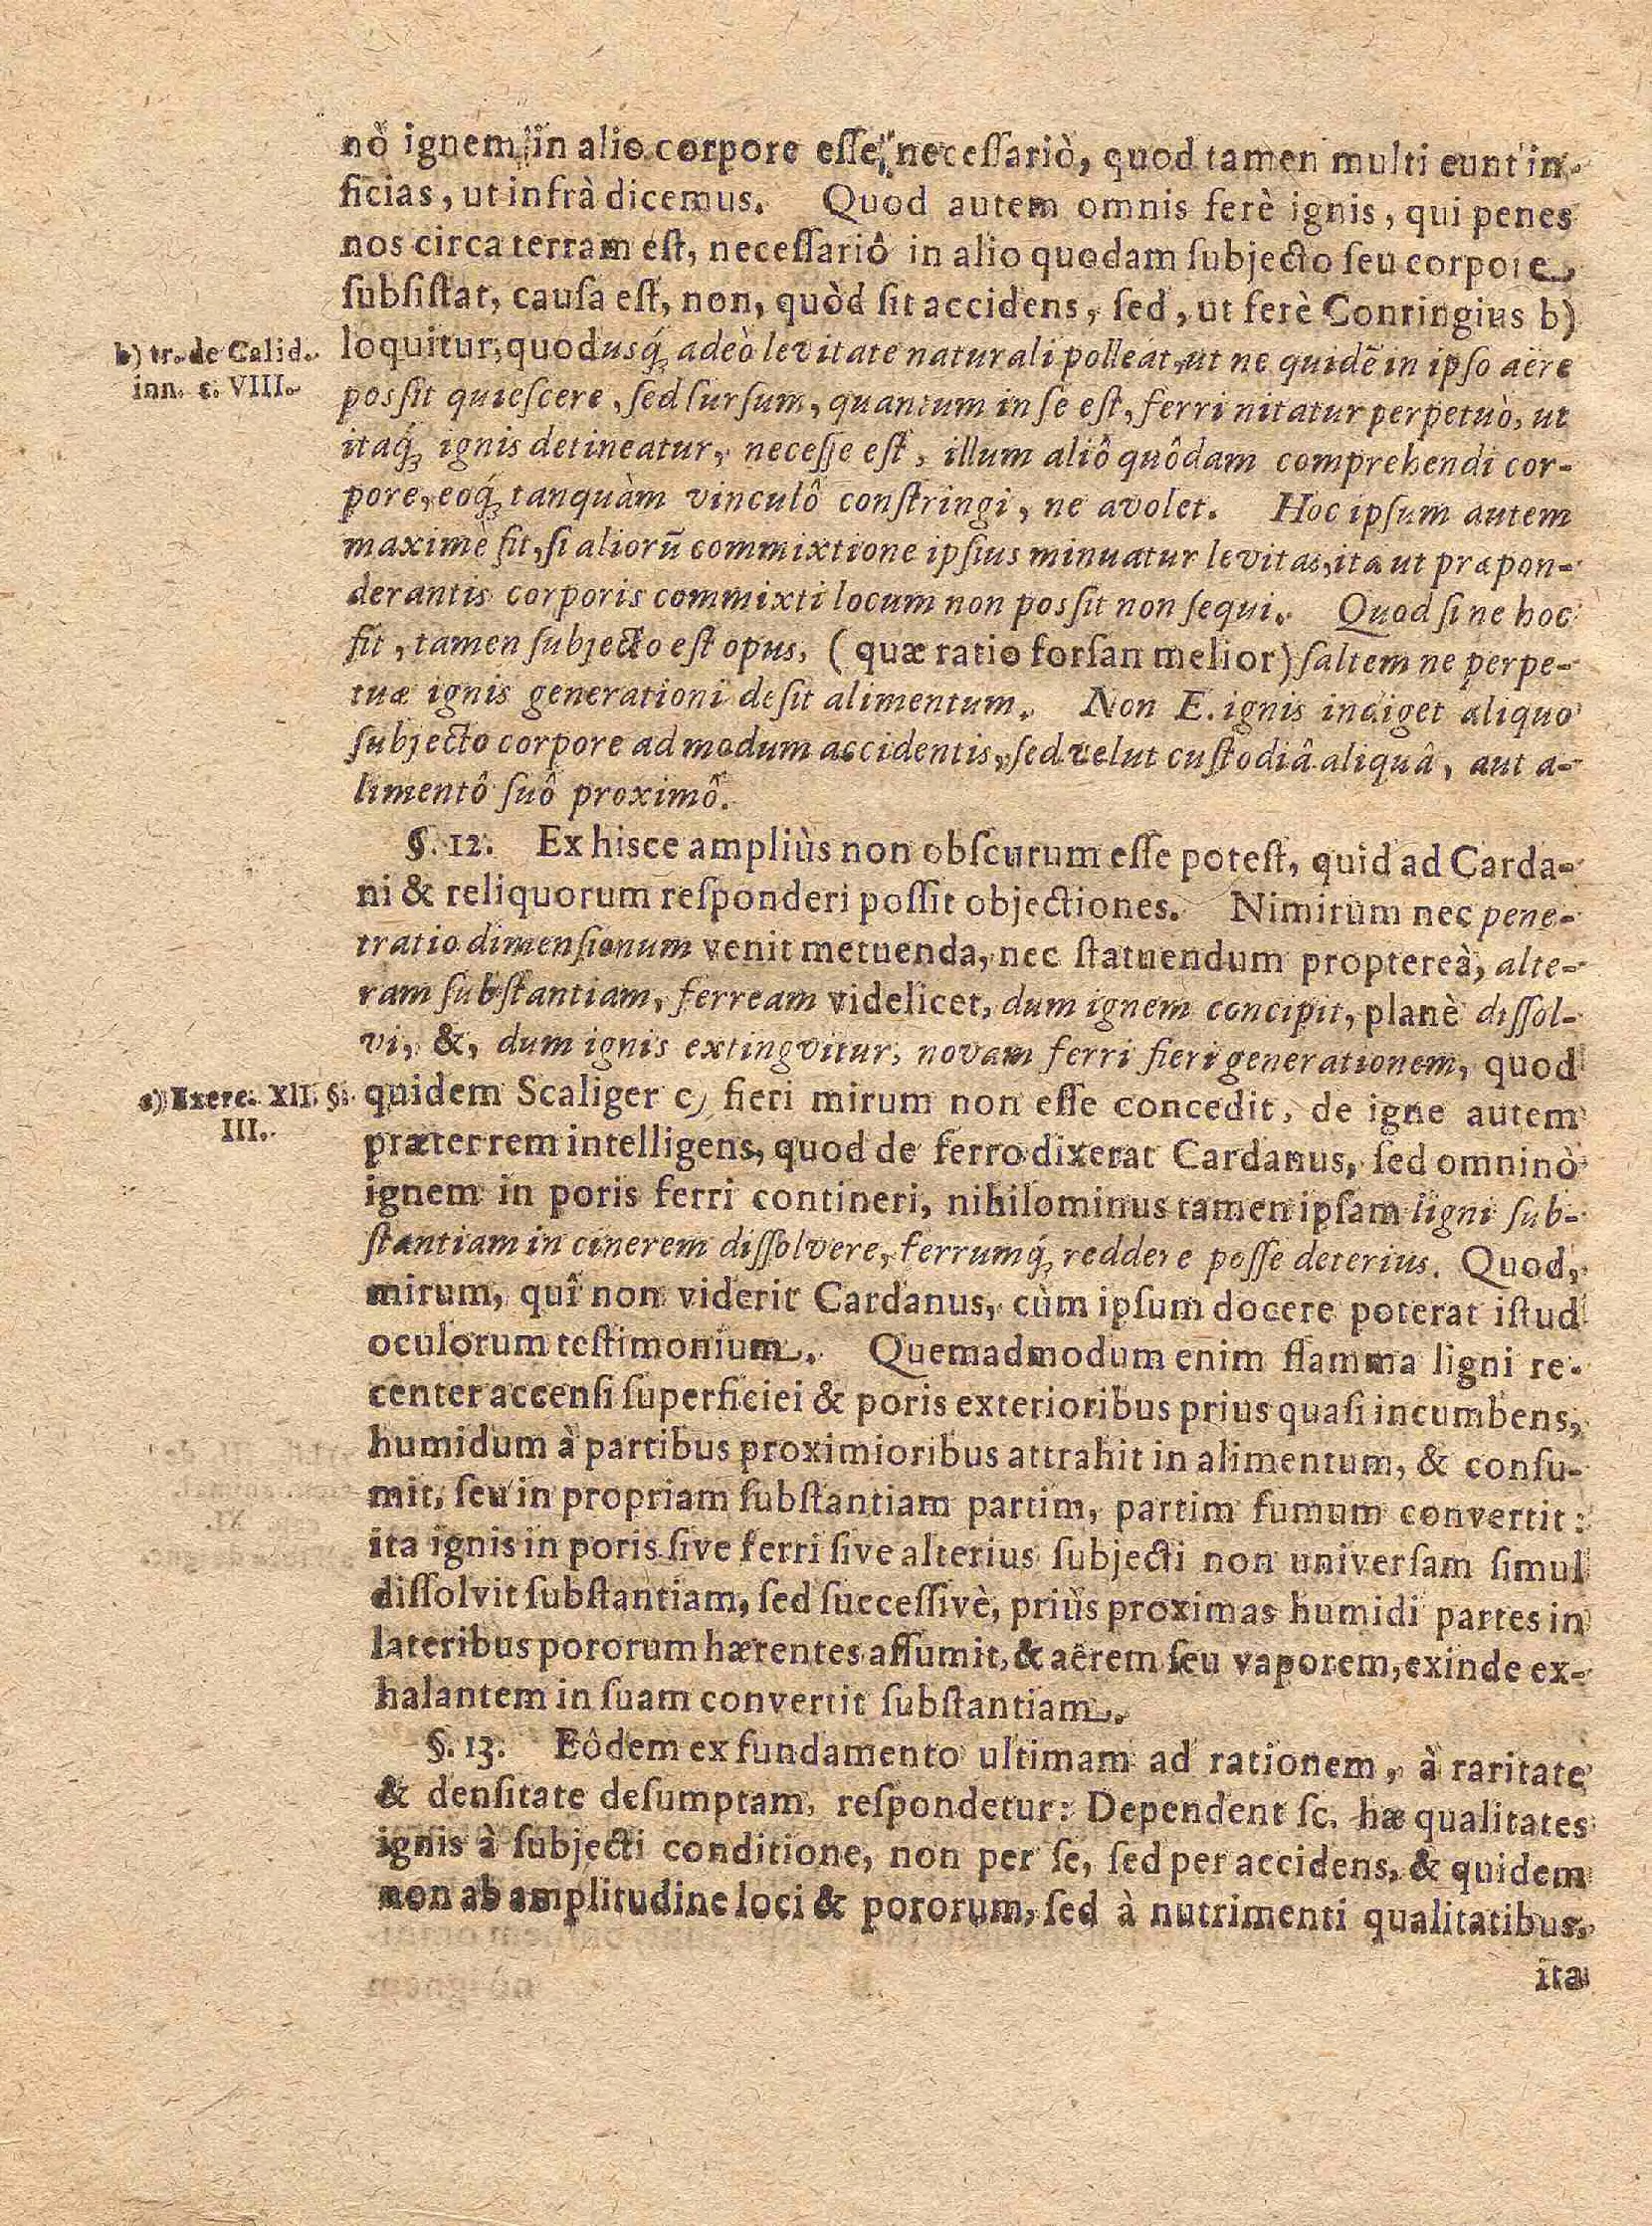 nò ignem in alio corpore eſſe, neceſſariò, quod tamen multi eunt in-
ficias, ut infrà dicemus. Quod autem omnis ferè ignis, qui penes
nos circa terram eſt, neceſſariô in alio quodam ſubjecto ſeu corpore
ſubſiſtat, cauſa eſt, non, quòd ſit accidens, ſed, ut ferè Conringius b)
b) tr. de Calid.
inn. c. VIII.
loquitur, quod usq́; adeò levitate naturali polleat, ut ne quidē in ipſo aëre
poſſit quieſcere, ſed ſurſum, quantum in ſe eſt, ferri nitatur perpetuò, ut
itaq́; ignis detineatur, neceſſe eſt, illum aliô quôdam comprehendi cor-
pore, eoq́; tanquàm vinculô conſtringi, ne avolet. Hoc ipſum autem
maximè fit, ſi aliorū commixtione ipſius minuatur levitas, ita ut præpon-
derantis corporis commixti locum non poſſit non ſequi. Quod ſi ne hoc
fit, tamen ſubjecto eſt opus, (quæ ratio forſan melior) ſaltem ne perpe-
tuæ ignis generationi deſit alimentum. Non E. ignis indiget aliquo
ſubjecto corpore ad modum accidentis, ſed velut cuſtodiâ aliquâ, aut a-
limentô ſuô proximô.
§. 12. Ex hisce ampliùs non obſcurum eſſe poteſt, quid ad Carda-
ni & reliquorum reſponderi poſſit objectiones. Nimirum nec pene-
tratio dimenſionum venit metuenda, nec ſtatuendum proptereà, alte-
ram ſubſtantiam, ferream videlicet, dum ignem concipit, planè diſſol-
vi, &, dum ignis extingvitur, novam ferri fieri generationem, quod
c) Exerc. XII. §.
III.
quidem Scaliger c) fieri mirum non eſſe concedit, de igne autem
præter rem intelligens, quod de ferro dixerat Cardanus, ſed omninò
ignem in poris ferri contineri, nihilominus tamen ipſam ligni ſub-
ſtantiam in cinerem diſſolvere, ferrumq́; reddere poſſe deterius. Quod,
mirum, quî non viderit Cardanus, cùm ipſum docere poterat iſtud
oculorum teſtimonium. Quemadmodum enim flamma ligni re-
center accenſi ſuperficiei & poris exterioribus prius quaſi incumbens,
humidum à partibus proximioribus attrahit in alimentum, & conſu-
mit, ſeu in propriam ſubſtantiam partim, partim fumum convertit:
ita ignis in poris ſive ferri ſive alterius ſubjecti non univerſam ſimul
diſſolvit ſubſtantiam, ſed ſucceſſivè, priùs proximas humidi partes in
lateribus pororum hærentes aſſumit, & aêrem ſeu vaporem, exinde ex-
halantem in ſuam convertit ſubſtantiam.
§. 13. Eôdem ex fundamento ultimam ad rationem, à raritate
& denſitate deſumptam, reſpondetur: Dependent ſc. hæ qualitates
ignis à ſubjecti conditione, non per ſe, ſed per accidens, & quidem
non ab amplitudine loci & pororum, ſed à nutrimenti qualitatibus,
ita